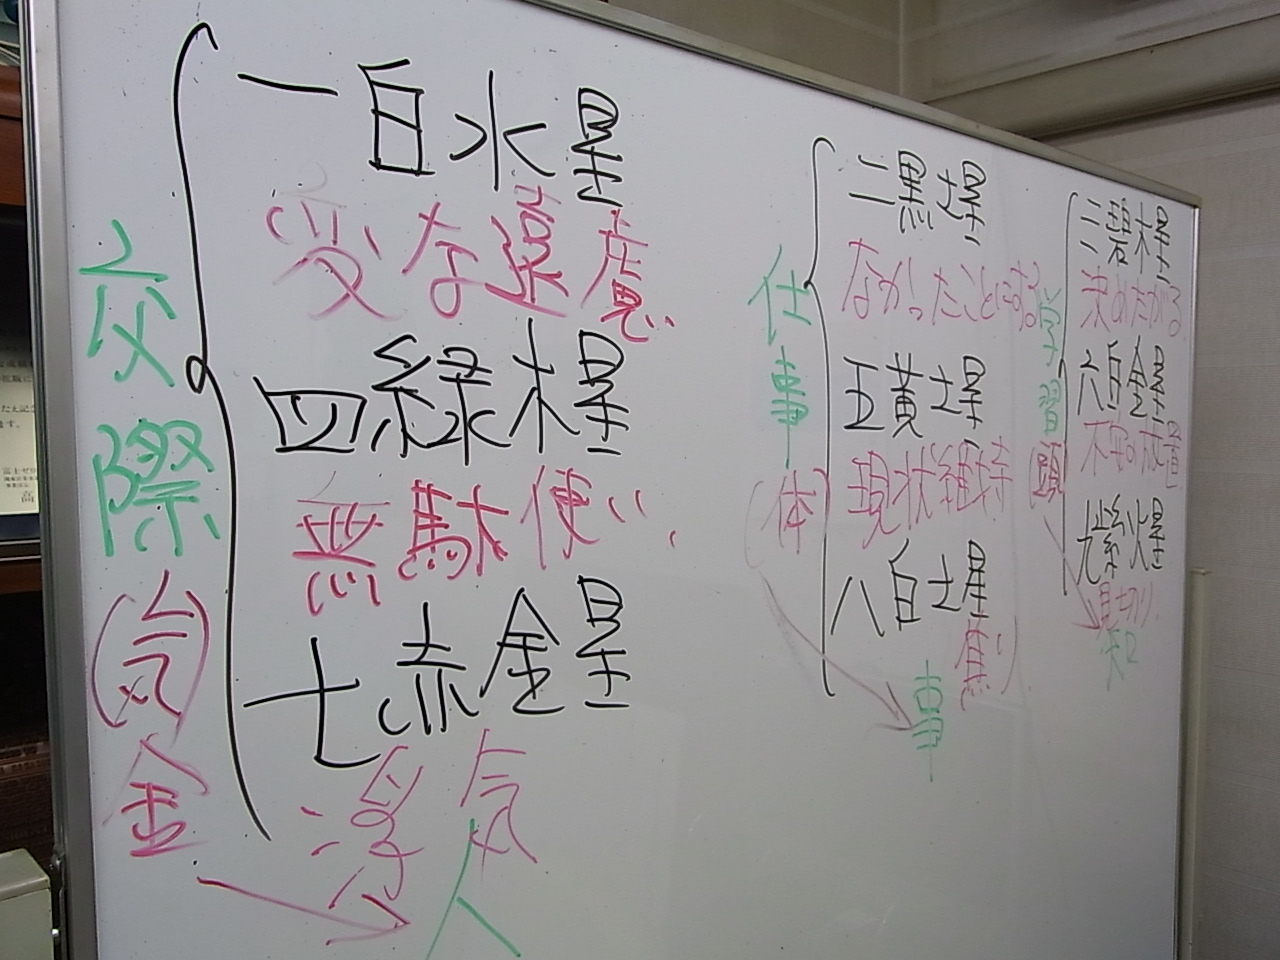 交際
(気)
金
一白水星
変な遠慮
四緑木星
無駄使い
七赤金星
浮気
人
仕事
(体)
二黒土星
なかったことにする
五黄土星
現状維持
八白土星
焦り
事
学習
頭
三碧木星
決めたがる
六白金星
不安の放置
九紫火星
見切り
知